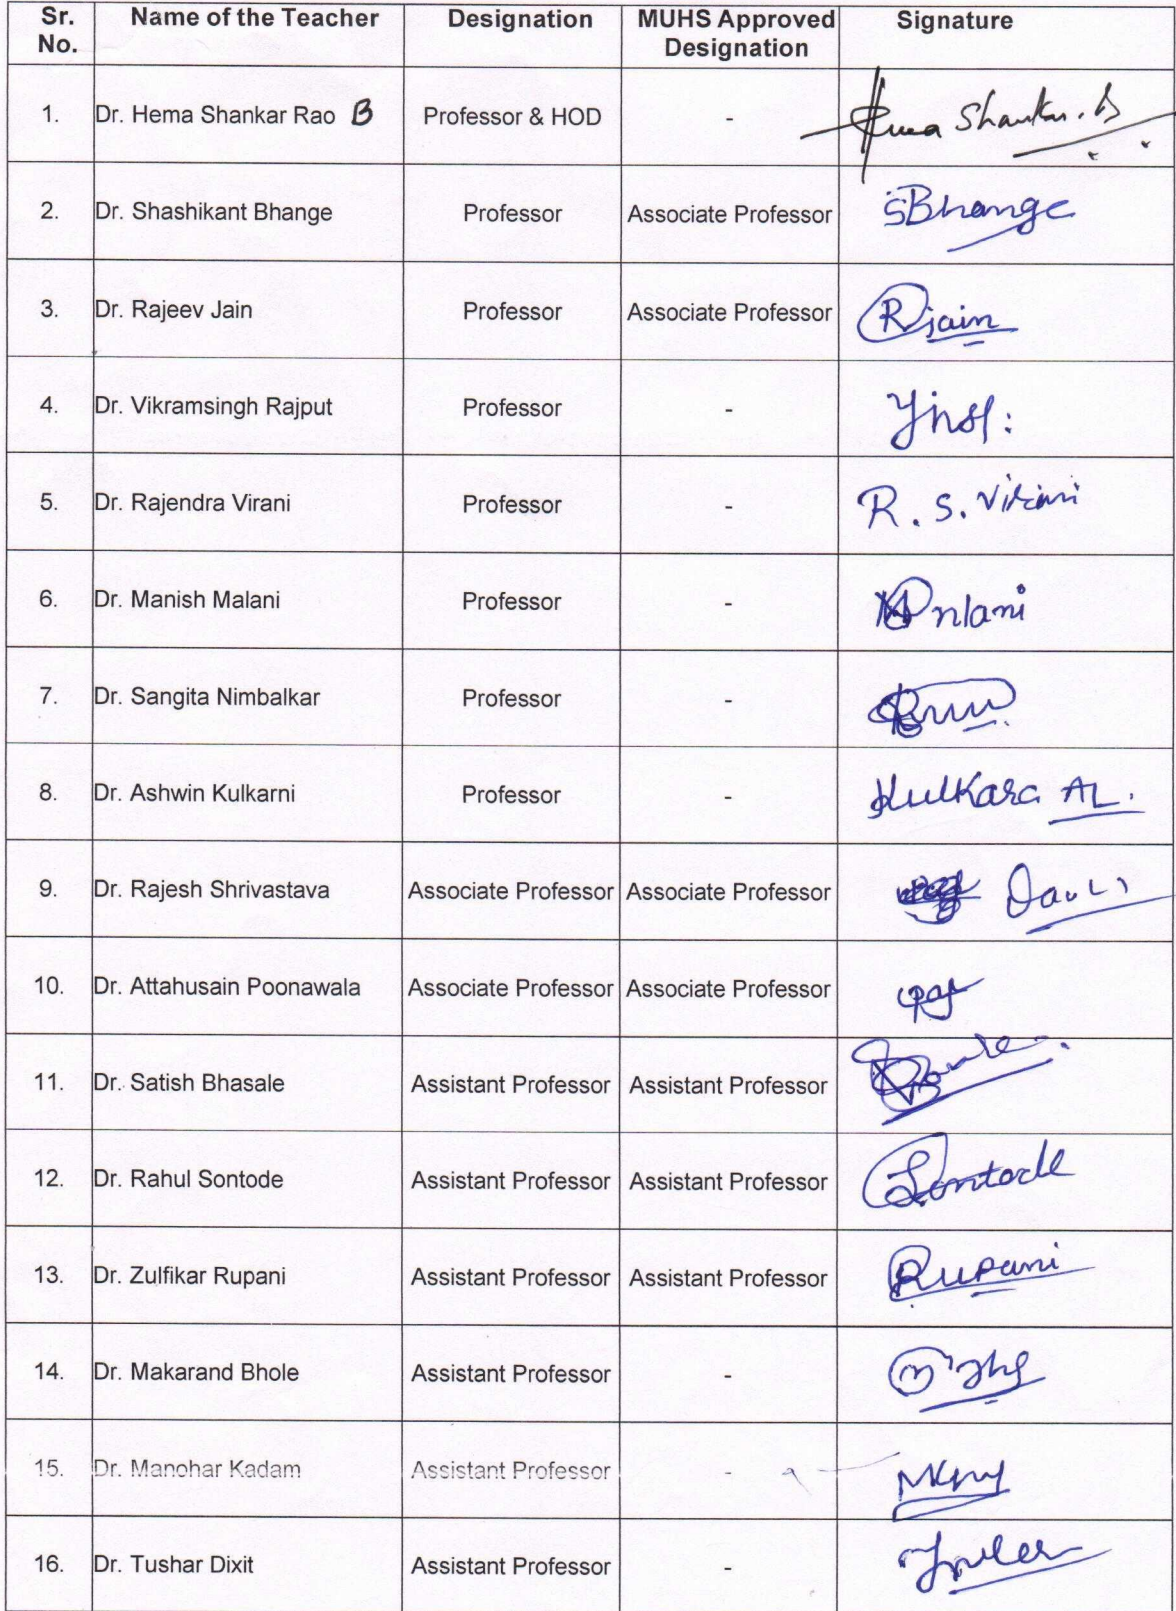 Sr. No. Name of the Teacher Designation MUHS Approved Designation Signature
1. Dr. Hema Shankar Rao B Professor & HOD - Hema Shankar. B
2. Dr. Shashikant Bhange Professor Associate Professor SBhange
3. Dr. Rajeev Jain Professor Associate Professor Rjain
4. Dr. Vikramsingh Rajput Professor -
5. Dr. Rajendra Virani Professor - R. S. Virani
6. Dr. Manish Malani Professor -
7. Dr. Sangita Nimbalkar Professor -
8. Dr. Ashwin Kulkarni Professor - AL.
9. Dr. Rajesh Shrivastava Associate Professor Associate Professor
10. Dr. Attahusain Poonawala Associate Professor Associate Professor
11. Dr. Satish Bhasale Assistant Professor Assistant Professor
12. Dr. Rahul Sontode Assistant Professor Assistant Professor Sontode
13. Dr. Zulfikar Rupani Assistant Professor Assistant Professor Rupani
14. Dr. Makarand Bhole Assistant Professor -
15. Dr. Manohar Kadam Assistant Professor -
16. Dr. Tushar Dixit Assistant Professor -